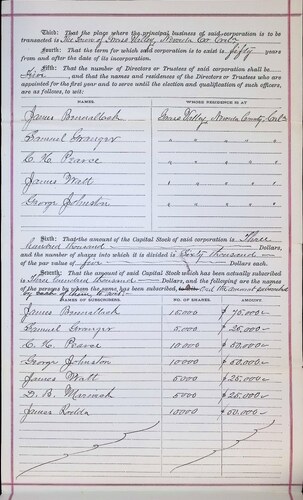 Third: That the place where the principal business of said corporation is to be
transacted is The Town of Grass Valley, Nevada Co. Cal.
Fourth: That the term for which said corporation is to exist is fifty years
from and after the date of its incorporation.
Fifth: That the number of Directors or Trustees of said corporation shall be
Five, and that the names and residences of the Directors or Trustees who are
appointed for the first year and to serve until the election and qualification of such officers,
are as follows, to wit:
NAMES. WHOSE RESIDENCE IS AT
James Bennallack Grass Valley, Nevada County, Cal.
Samuel Granger " " " "
C. H. Pearce " " " "
James Watt " " " "
George Johnston " " " "
Sixth: That the amount of the Capital Stock of said corporation is Three
hundred thousand Dollars,
and the number of shares into which it is divided is Sixty thousand
of the par value of five Dollars each.
Seventh: That the amount of said Capital Stock which has been actually subscribed
is Three hundred thousand Dollars, and the following are the names
of the persons by whom the same has been subscribed, and the amount subscribed
by each of them, to wit:
NAMES OF SUBSCRIBERS. NO. OF SHARES. AMOUNT.
James Bennallack 15,000 $75,000
Samuel Granger 5,000 $25,000
C. H. Pearce 10,000 $50,000
George Johnston 10,000 $50,000
James Watt 5,000 $25,000
D. B. 5,000 $25,000
James Rodda 10,000 $50,000